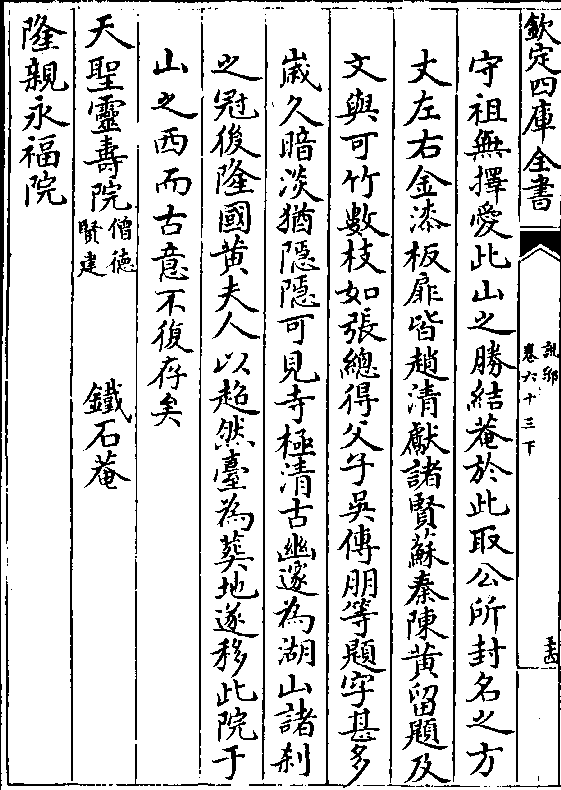 欽定四庫全書
說郛
卷六十三下
守祖無擇愛此山之勝結菴於此取公所封名之方
丈左右金漆板扉皆趙清獻諸賢蘇秦陳黄留題及
文與可竹數枝如張總得父子吳傅朋等題字甚多
嵗久暗淡猶隱隱可見寺極清古幽邃為湖山諸刹
之冠後隆國黄夫人以超然臺為葬地遂移此院于
山之西而古意不復存矣
天聖靈壽院僧德賢建　鐵石菴
隆親永福院